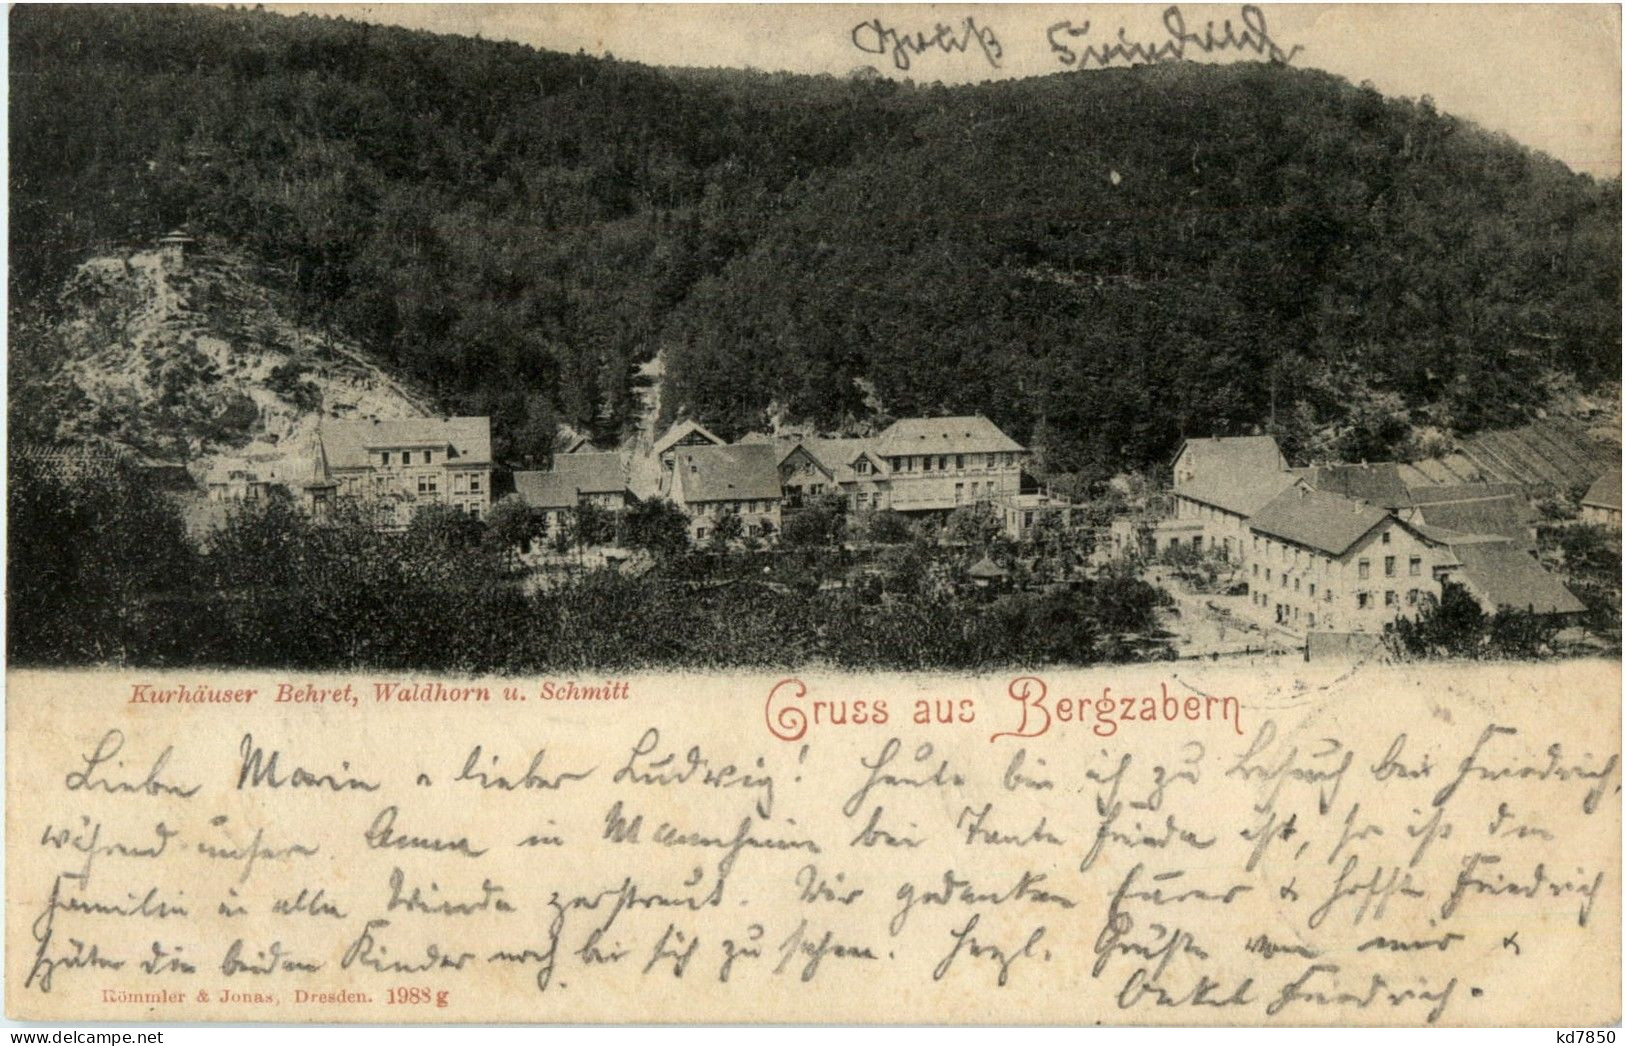 Gruß
Kurhäuser Behret, Waldhorn u. Schmitt
Gruss aus Bergzabern
Liebe Marie u lieber Ludwig! Heute bin ich zu Besuch bei Friedrich,
während unsere Anna in Mannheim bei Tante Frieda ist, so ist die
Familie in alle Winde zerstreut. Wir gedenken Eurer & hofft Friedrich
später die beiden Kinder noch bei sich zu sehen. Herzl. Grüße von mir &
Onkel Friedrich.
Römmler & Jonas, Dresden. 1988 g
kd7850